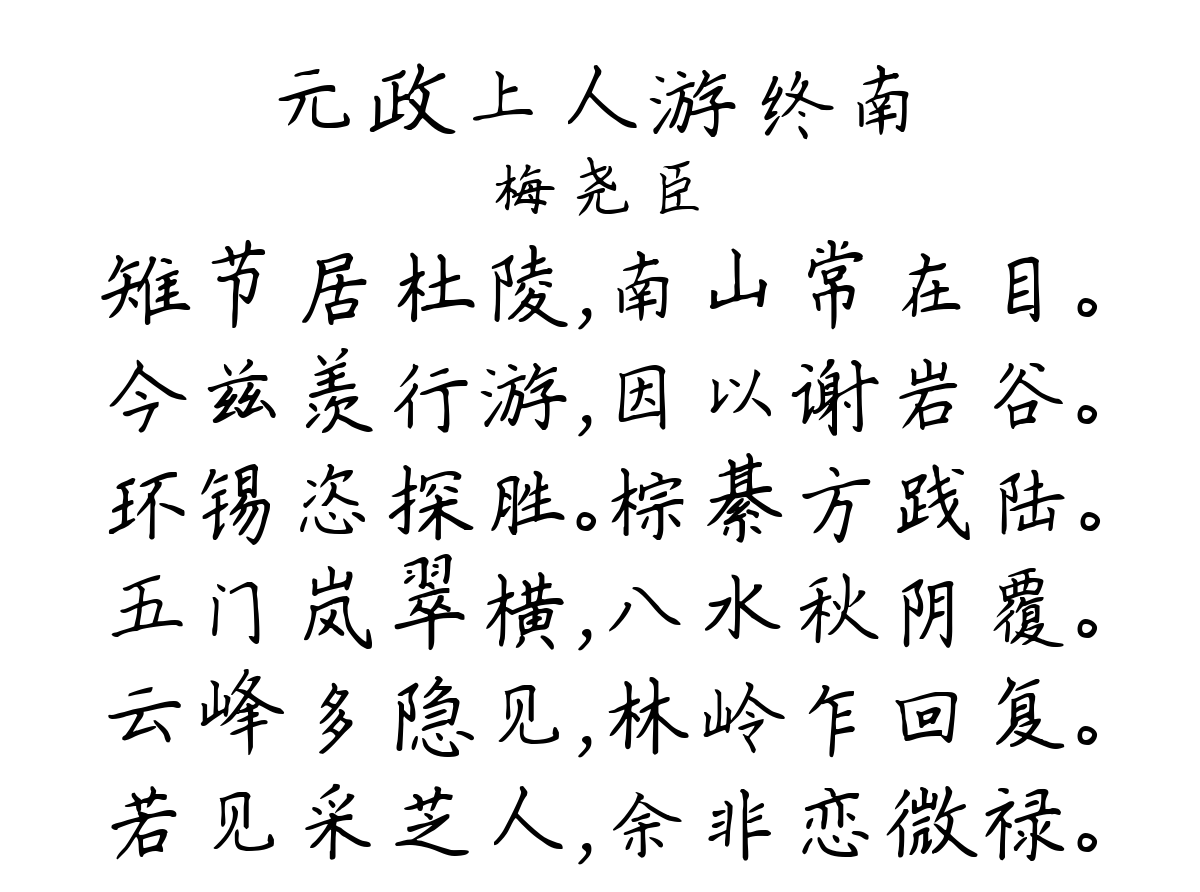 元政上人游终南
梅尧臣
雉节居杜陵,南山常在目。
今兹羡行游,因以谢岩谷。
环锡恣探胜。棕綦方践陆。
五门岚翠横,八水秋阴覆。
云峰多隐见,林岭乍回复。
若见采芝人,余非恋微禄。